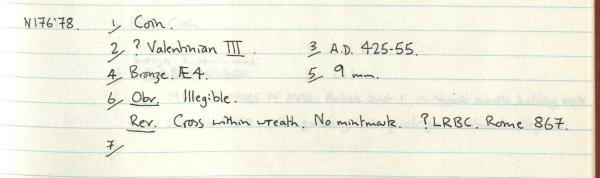 N176'78. 1/ Coin.
2/ ? Valentinian III. 3/ A.D. 425-55.
4/ Bronze. Æ4. 5/ 9 mm.
6/ Obv. Illegible.
Rev. Cross within wreath. No mintmark. ? LRBC. Rome 867.
7/